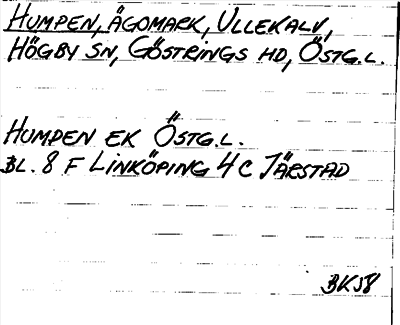 HUMPEN, ÄGOMARK, ULLEKALV,
HÖGBY SN, GÖSTRINGS HD, ÖSTG.L.
HUMPEN EK ÖSTG.L.
BL. 8 F LINKÖPING 4 C JÄRSTAD
BK58